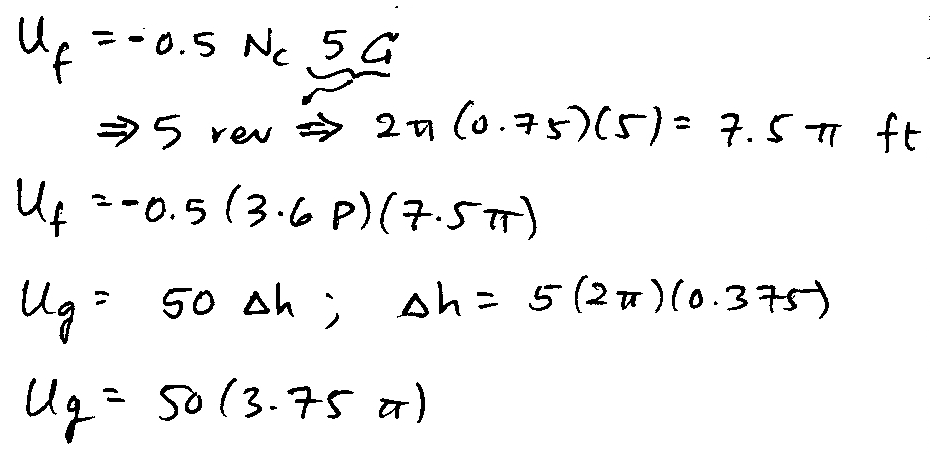 U_f = -0.5 N_c 5 G
⇒ 5 rev ⇒ 2π (0.75)(5) = 7.5 π ft
U_f = -0.5 (3.6 P)(7.5π)
U_g = 50 Δh ; Δh = 5 (2π)(0.375)
U_g = 50 (3.75 π)